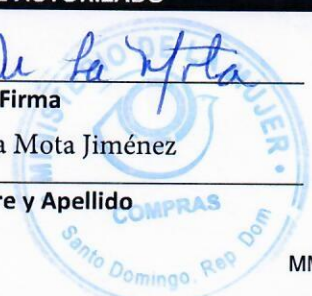 AUTORIZADO
De La Mota
Firma
a Mota Jiménez
re y Apellido
MINISTERIO DE
MUJER
COMPRAS
Santo Domingo, Rep Dom
MM